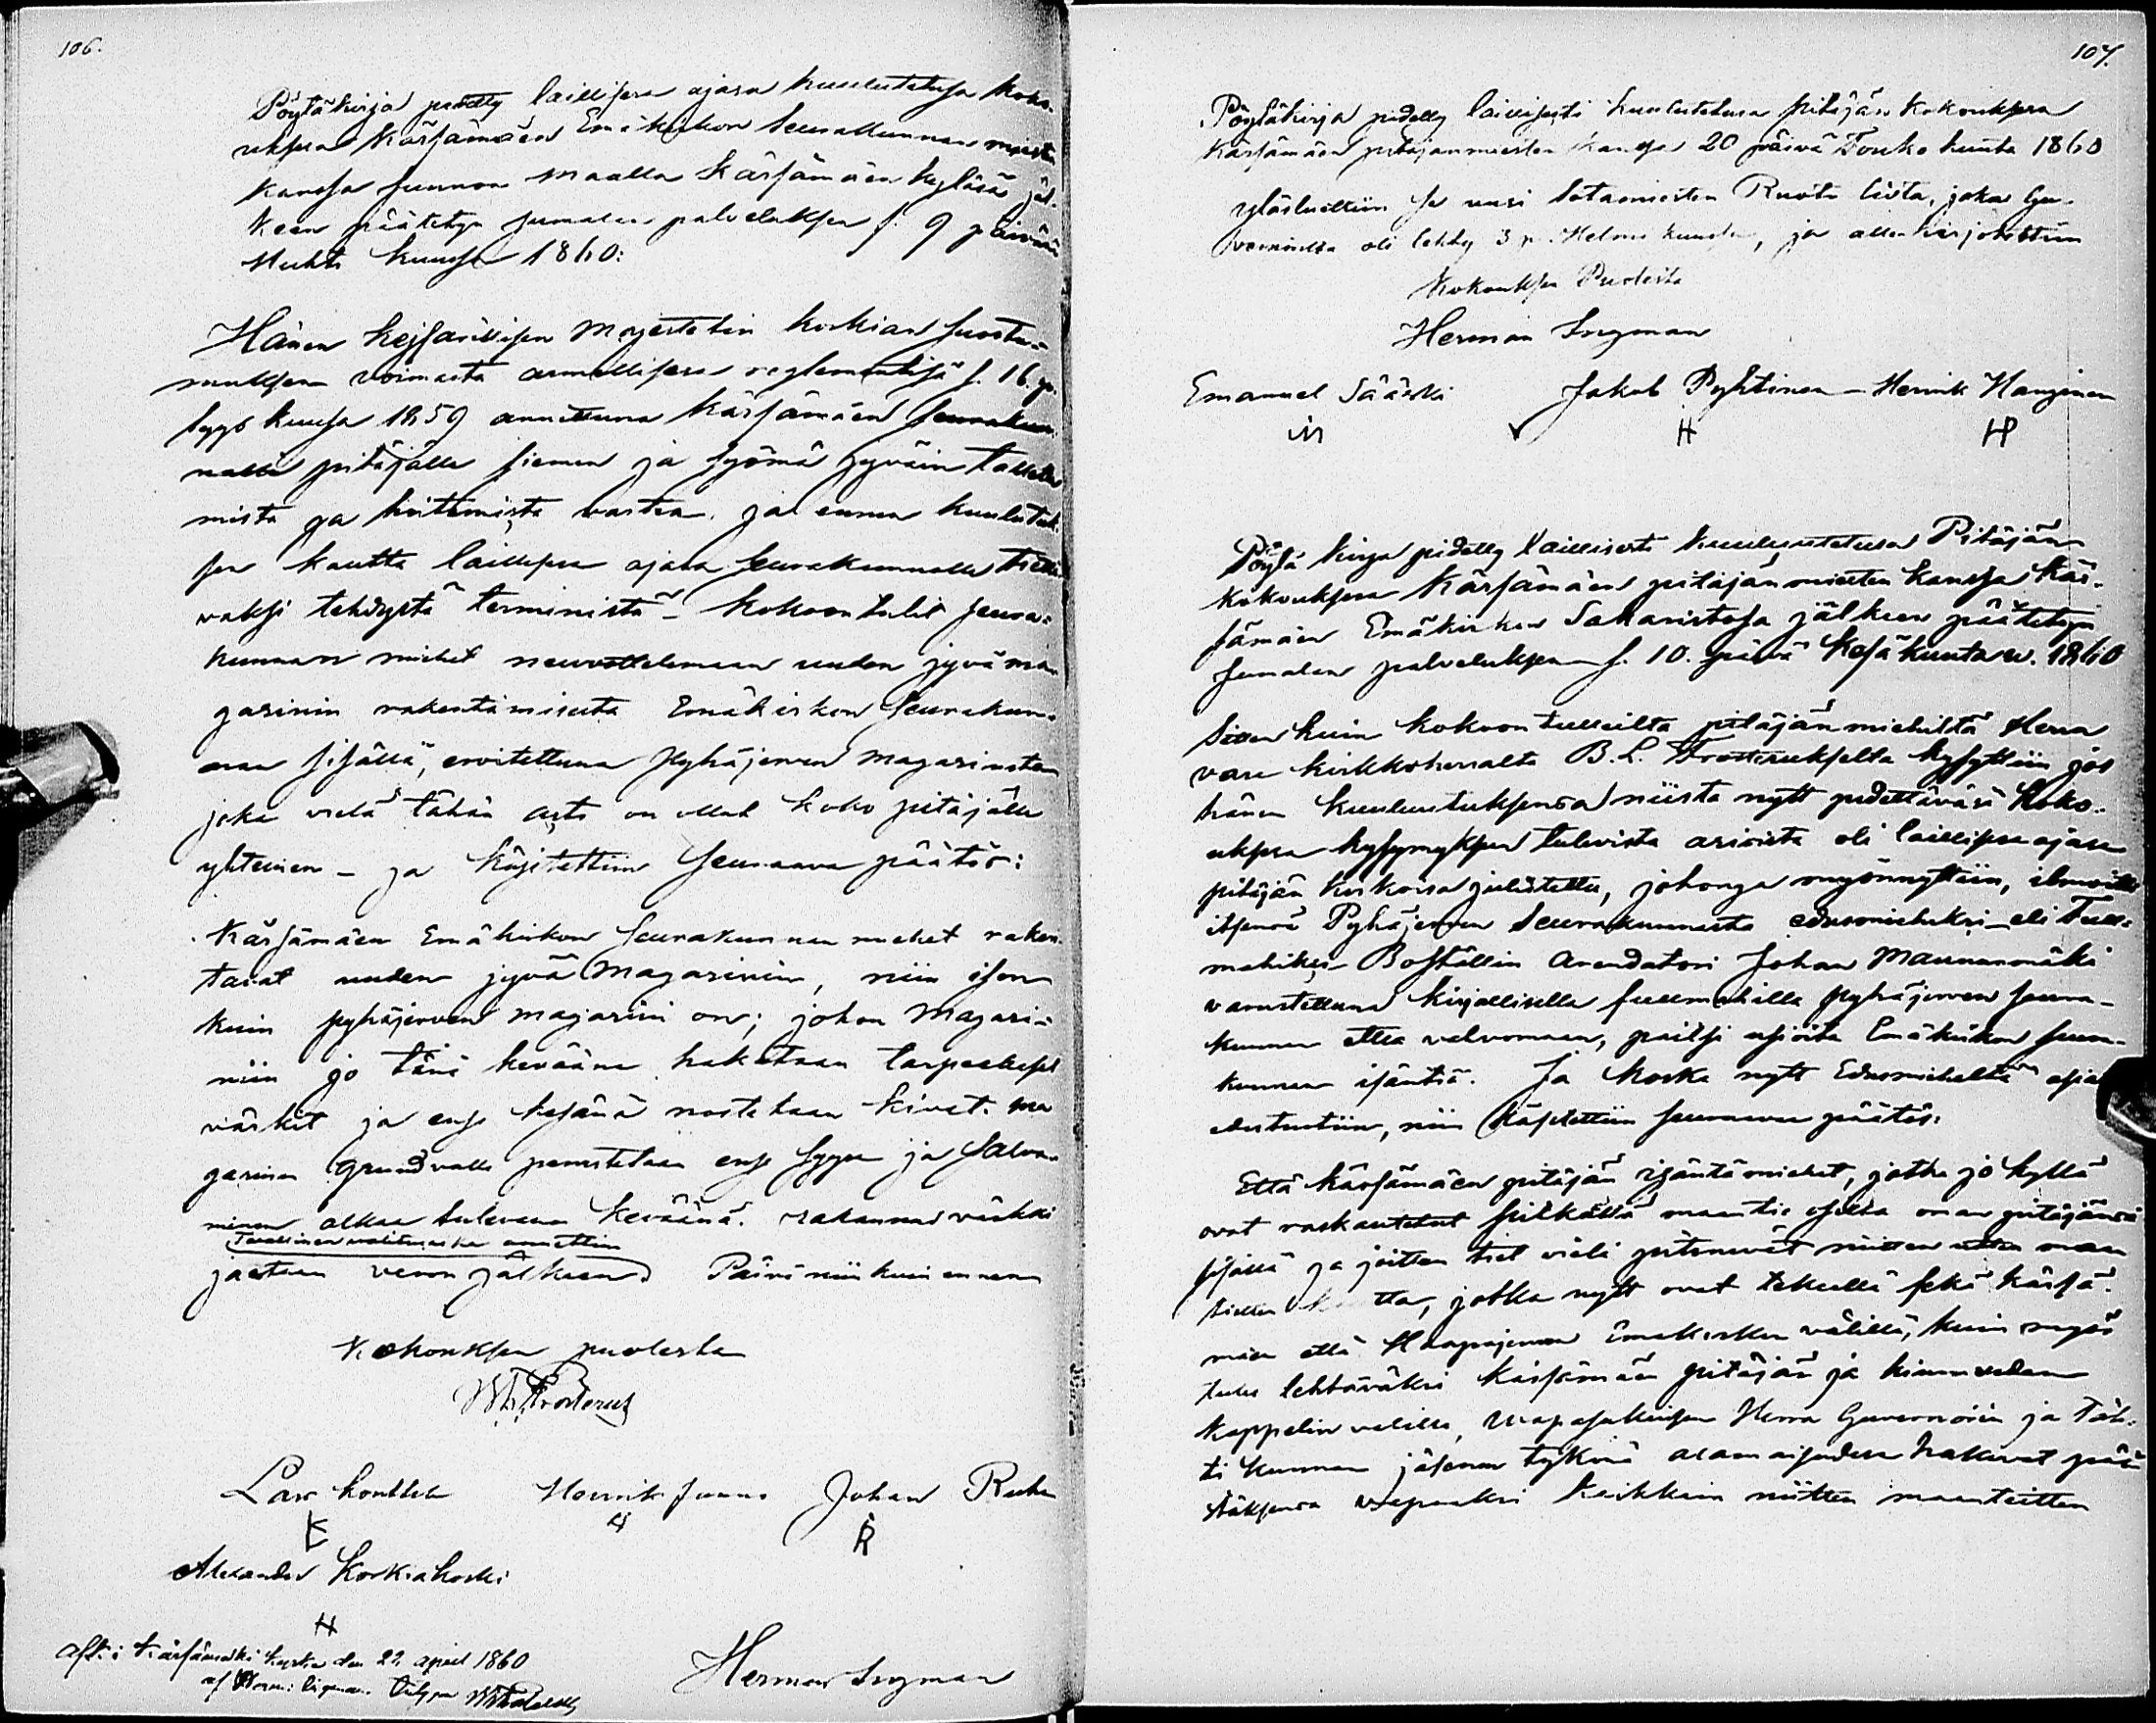 106.
Pöytäkirja pidetty laillisesa ajasa kuulutetusa koko-
uksesa Kärsämäen Emäkirkon Seurakunnan miesten
kansa Junnon maalla Kärsämäen kyläsä jäl-
keen päätetyn jumalan palveluksen s. 9 päivänä
Huhti kuusa 1860:
Hänen Kejsarillisen Majestetin korkian suostu-
muksen voimasta armollisesa reglementisä s. 16. p.
Syys kuusa 1859 annettuna Kärsämäen seurakun-
nalle pitäjälle siemen ja syömä jyväin tallelle
mista ja hoitamista vasten. ja ennen kuulutuk-
sen kautta laillisesa ajasa seurakunnalle tiettä-
väksi tehdystä terministä – kokoon tulit seura-
kunnan miehet neuvottelemaan uuden jyvä ma-
gasinin rakentamisesta Emäkirkon Seurakun-
nan sisällä, eroitettuna Pyhäjerven magasinista
joka vielä tähän asti on ollut koko pitäjälle
yhteinen – ja käsitettiin seuraava päätös:
Kärsämäen Emäkirkon seurakunnan miehet raken-
tavat uuden jyvä Magasinin, niin ison
kuin pyhäjerven magasini on; johon Magasi-
niin jo tänä keväänä hakataan tarpeelliset
värkit ja ens kesänä nostetaan kivet. Ma
gasinin grundvalli perustetaan ens syysä ja salva-
minen alkaa tulevana keväänä. rakannus värkki
Tavallinen valitus aika annettiin
jaetaan veron jälkeen. Päivä niin kuin ennen
Kokouksen puolesta
Lars Konttila Henrik Junno Johan Ruha
K
L
R
Alexander Korkiakoski
H
Afk. i Kärsämäki kyrka den 22 april 1860
Herman Ingman
107.
Pöytäkirja pidetty laillisesti kuulutetusa pitäjän kokouksesa
Kärsämäen pitäjänmiesten kansa 20 päivä Touko kuuta 1860
ylösluettiin se uusi Sotamiesten Ruotu lista, joka Gu-
vernöriltä oli tehty 3 p. Helmi kuusa, ja allekirjoitettiin
Kokouksen Puolesta
Herman Ingman
Emanuel Sääski Jakob Pyhtinen – Henrik Hanginen
H HP
Pöytä kirja pidetty laillisesti kuulutetusa Pitäjän
kokouksesa Kärsämäen pitäjän miesten kansa Kär-
sämäen Emäkirkon Sakaristosa jälkeen päätetyn
jumalan palveluksen s. 10. päivä Kesäkuuta v. 1860
Sitten kuin kokoon tulleilta pitäjän miehiltä Herra
vara kirkkoherralta B. L. Frosteruxelta kysyttiin jos
hänen kuulutuksensa niistä nytt pidettäväsä koko-
uksesa kysymyksen tulevista asioista oli laillisesa ajasa
pitäjän kirkoisa julistettu, johonga myönnyttiin, ilmoitti
itsensä Pyhäjerven Seurakunnasta edusmieheksi eli Full-
mahiksi Boställin Arendatori Johan Maunonmäki
varustettuna kirjallisella fullmahilla pyhäjerven seura-
kunnan etua valvomaan, paitsi usioita Emäkirkon seura-
kunnan isäntiä. Ja koska nytt Edusmieheltä asia
edustettiin, niin käsitettiin seuraava päätös:
Että Kärsämäen pitäjän isäntämiehet, jotka jo kyllä
ovat raskautetut pitkällä maantie osilla oman pitäjänsä
sisällä ja joitten tiet vielä pitenevät niitten uutten maan
teitten kautta, jotka nytt ovat tekeellä sekä Kärsä-
mäen että Haapajerven Emäkirkon välillä, kuin myös
tulee tehtäväksi Kärsämäen pitäjän ja
kappelin välillä, Herra Guvernörin ja Tih-
ti kunnan jäsenen tykönä alamaisudesa hakevat pääs-
täksensä vapaaksi kaikkein niitten maanteitten